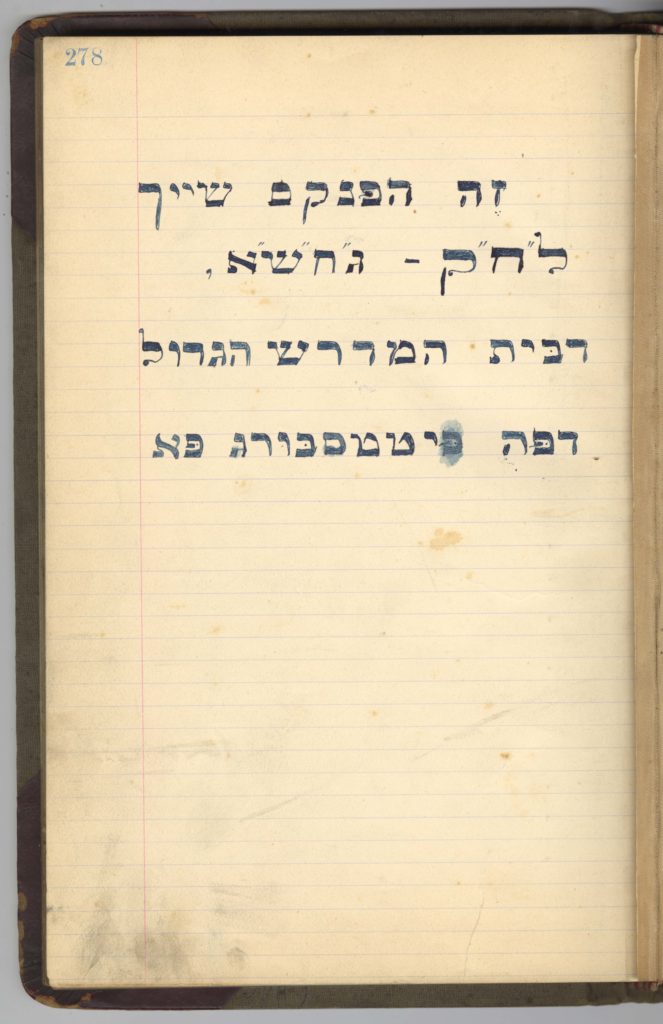 278
זֶה הפּנקס שייך
ל"ח"ק - ג"ח"ש"א,
דבּית המדרש הגדול
דפּה פּיטטסבּורג פּא